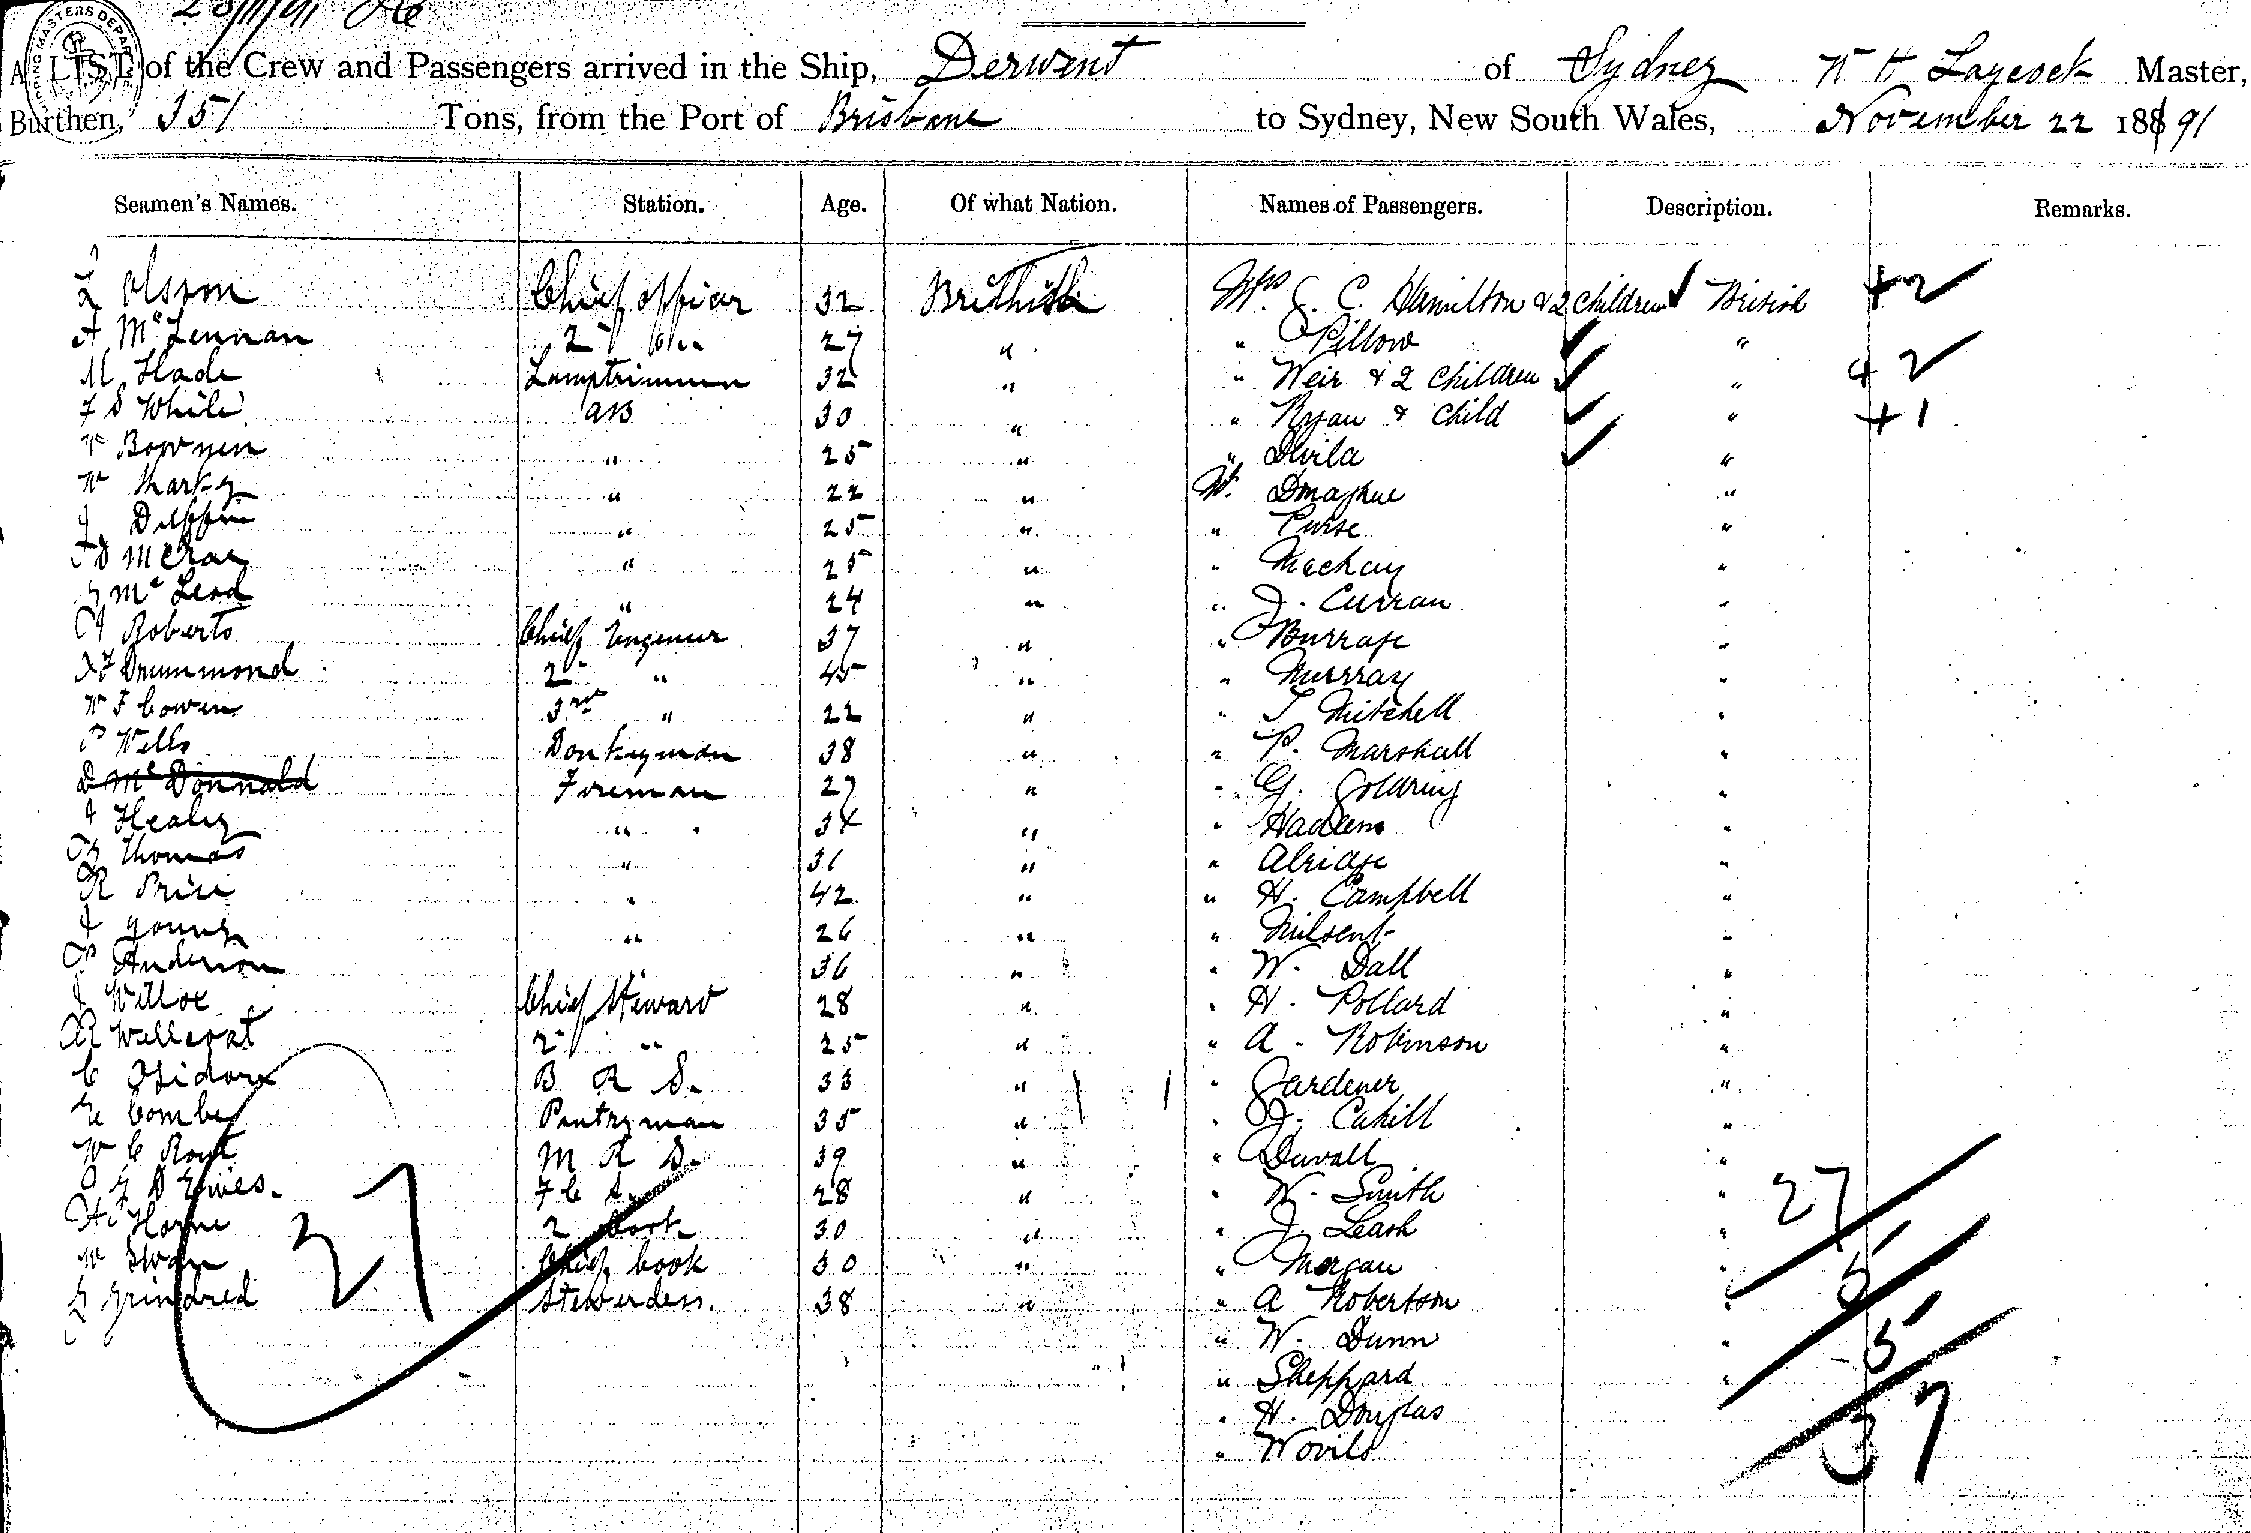 A LIST of the Crew and Passengers arrived in the Ship, Derwent of Sydney W H Laycock Master,
Burthen, 351 Tons, from the Port of Brisbane to Sydney, New South Wales, November 22 1891
Seamen's Names. Station. Age. Of what Nation. Names of Passengers. Description. Remarks.
Olsson Chief officer 32 Brithish Mrs C. Hamilton & 2 children British +2
A McLennan 2 27 " " Pillow "
M Hade Lamptrimmer 32 " " Weir & 2 children " +2
F S While AB 30 " " Ryan & child " +1
W Bowyen " 25 " " Divila "
W " 22 " Mr. Donaghue "
J " 25 " " Purse "
McCray " 25 " " Mackay "
McLeod " 24 " " J. Curran "
Roberts Chief Engineer 37 " " Burrage "
Drummond 2 " 45 " " Murray "
W F Cowen 3rd " 22 " " T Mitchell "
P Wells Donkeyman 38 " " P. Marshall "
D McDonnald Fireman 27 " " G. Goldring "
J Healey " 34 " " "
Thomas " 31 " " Alridge "
R Price " 42 " " H. Campbell "
J Young " 26 " " Milsent "
P Anderson 36 " " W. Dall "
J Chief Steward 28 " " H. Pollard "
2 " 25 " " A. Robinson "
C Isidore B R S. 33 " " Gardener "
Combe Pantryman 35 " " J. Cahill "
W C M R S. 39 " " Duvall "
F C S. 28 " " W. Smith " 27
H Horne 2 Cook 30 " " J. Leash "
W Swan Chief Cook 30 " " Morgan " 5
Grindred Stewerdess. 38 " " A Robertson "
27
" W. Dunn " 5
" Sheppard "
" H. Douglas 37
"